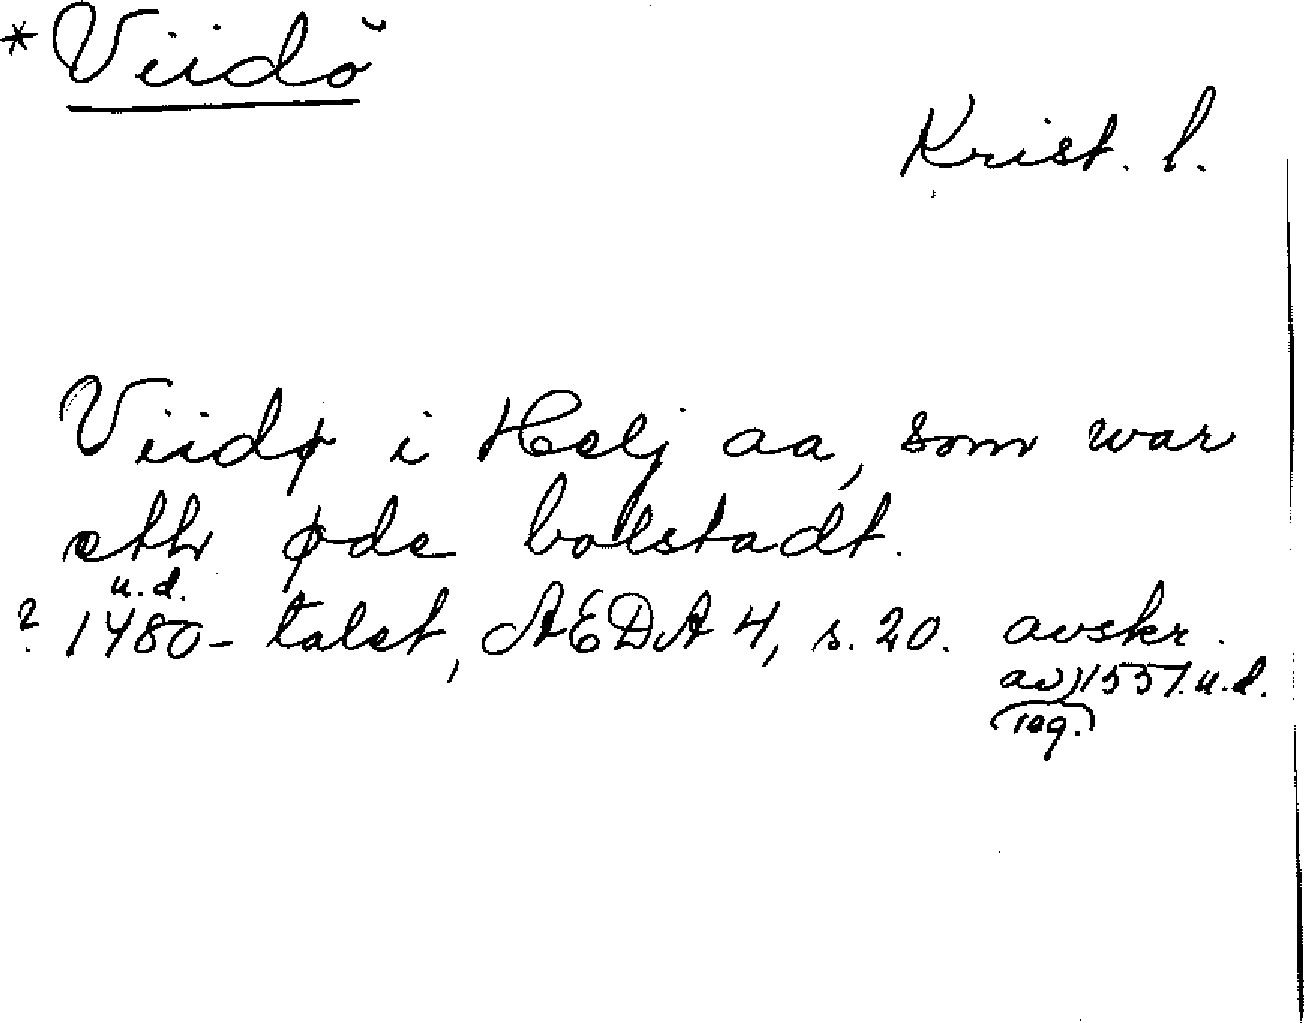 * Viidö
Krist. l.
Viidø i Helj aa, som war
eth øde bolstadt.
u.d.
? 1480-talet, ÆDA 4, s. 20. avskr.
av 1557. u.d.
reg.